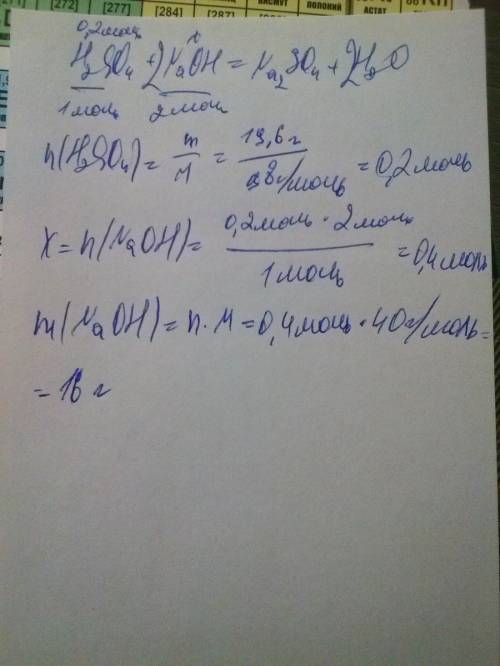 [272] [277] [284] [287] ВИСМУТ ПОЛОНИЙ АСТАТ
0,2 моль x
H2SO4 + 2NaOH = Na2SO4 + 2H2O
1 моль 2 моль
n(H2SO4) = m/M = 19,6 г / 98 г/моль = 0,2 моль
X = n(NaOH) = 0,2 моль · 2 моль / 1 моль = 0,4 моль
m(NaOH) = n · M = 0,4 моль · 40 г/моль =
= 16 г